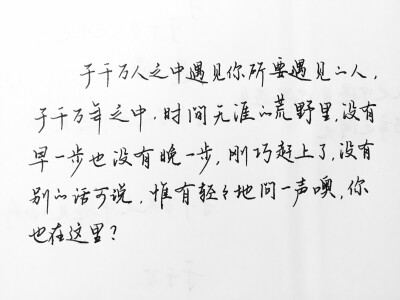 于千万人之中遇见你所要遇见的人,
于千万年之中,时间无涯的荒野里,没有
早一步也没有晚一步,刚巧赶上了,没有
别的话可说,惟有轻々地问一声噢,你
也在这里?